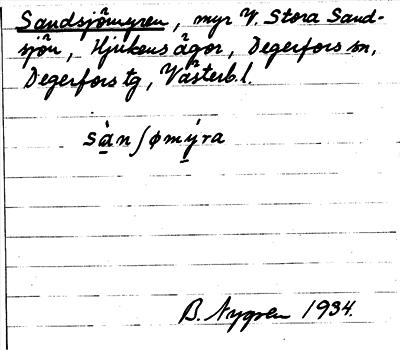 Sandsjömyren, myr V. Stora Sand-
sjön, Hjukens ägor, Degerfors sn,
Degerfors tg, Västerb. l.
sàn ʃømýra
B. Nygren 1934.